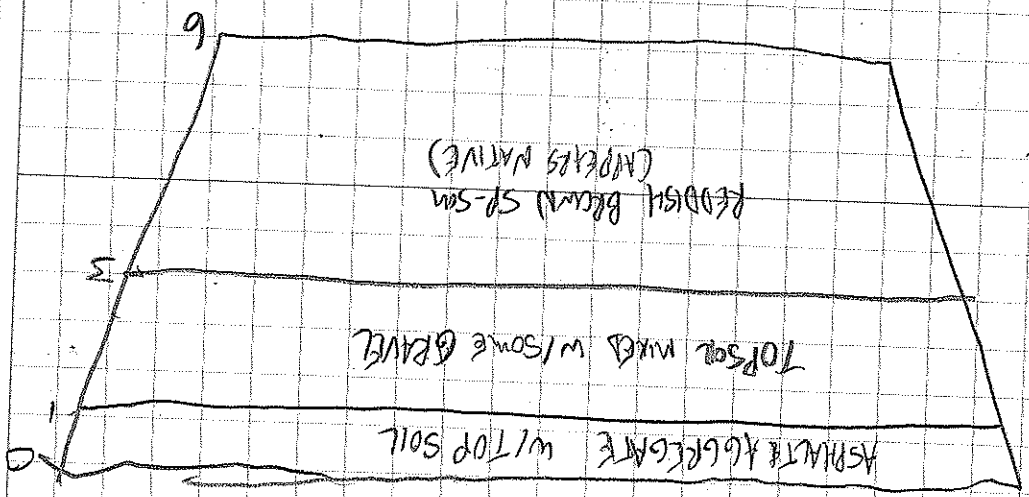 0
ASPHALT & AGGREGATE W/ TOP SOIL
1
TOPSOIL MIXED W/ SOME GRAVEL
3
REDDISH BROWN SP-SM
(APPEARS NATIVE)
6